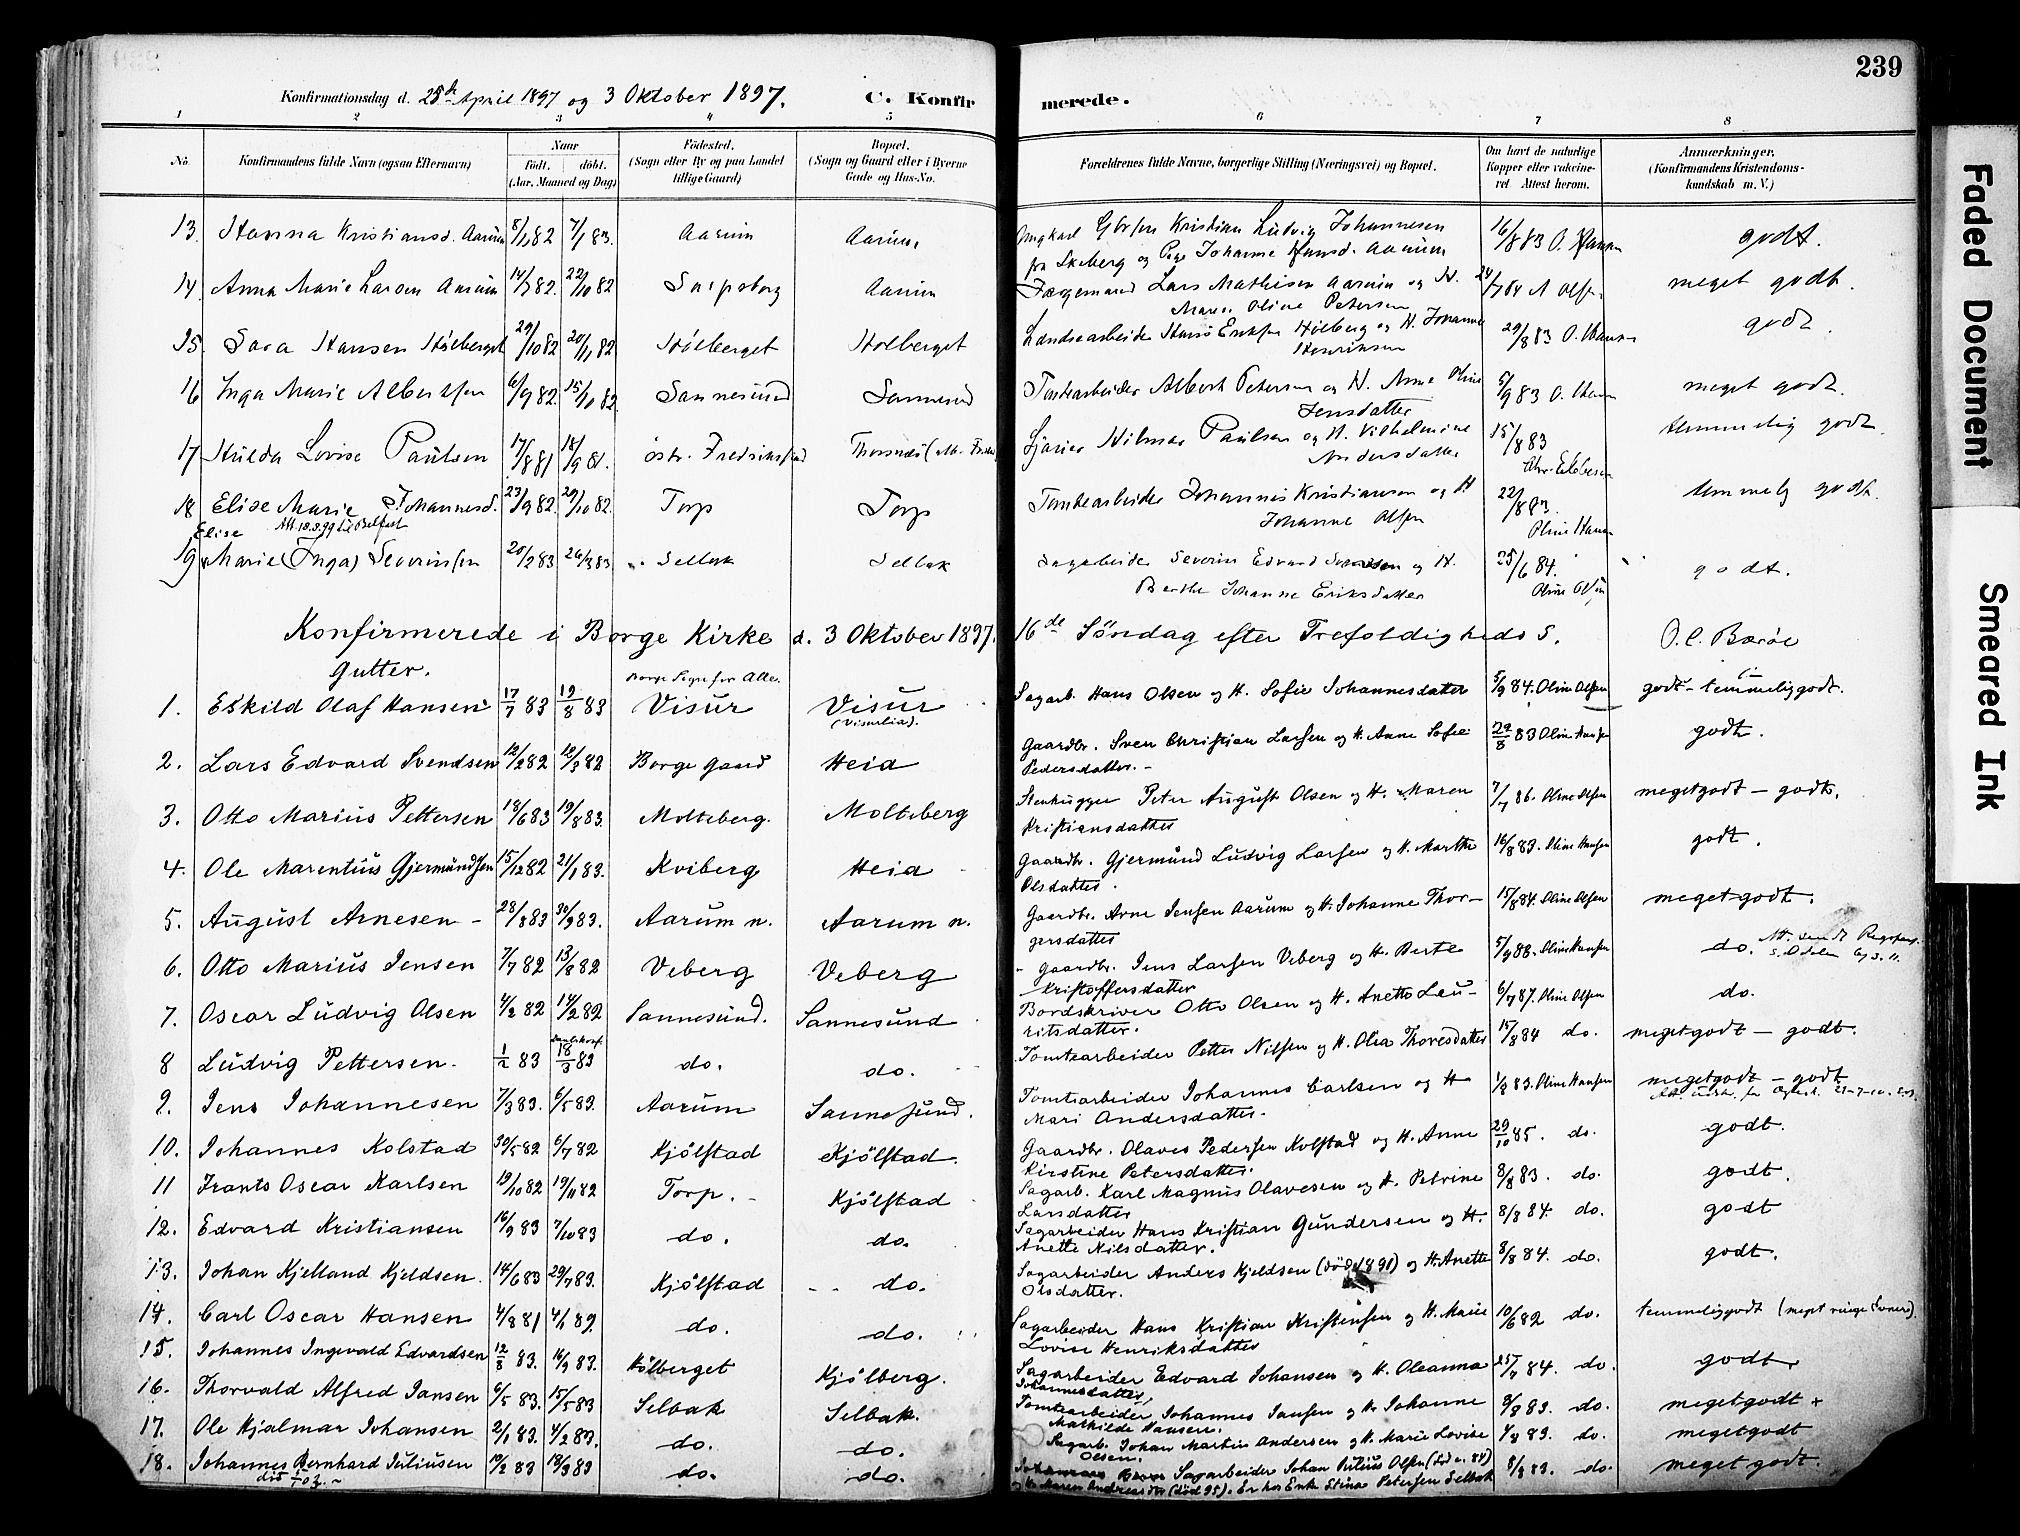 239
Konfirmationsdag d. 25de April 1897 og 3 Oktober 1897.
C. Konfir merede.
1 2 3 4 5 6 7 8
No. Konfirmandens fulde Navn (ogsaa Efternavn) Naar født. døbt. (Aar, Maaned og Dag) Fødested. (Sogn eller By og paa Landet tillige Gaard) Bopæl. (Sogn og Gaard eller i Byerne Gade og Hus-No. Forældrenes fulde Navne, borgerlige Stilling (Næringsvei) og Bopæl. Om havt de naturlige Kopper eller vakcineret. Attest herom. Anmærkninger. (Konfirmandens Kristendomskundskab m. V.)
13. Hanna Kristiansd. Aarum 8/1 82 7/1 83. Aarum Aarum Ungkarl Kristian Ludvig Johannesen 16/8 83 O. Hansen godt.
fra Skeberg og Pige Johanne Hansd. Aarum
14. Anna Marie Larsen Aarum 14/7 82. 22/10 82 Sarpsborg Aarum Færgemand Lars Mathisen Aarum og H. 24/7 84 A Olsen meget godt.
Maren Oline Petersen
15. Sara Hansen Hølberget 29/10 82 20/11 82 Hølberget Holberget Landsearbeider Hans Eriksen Hølberg og H. Johanne 29/8 83 O. Hansen godt.
Henriksen
16 Inga Marie Albertsen 6/9 82. 15/10 82. Sannesund Sannesund Tomtearbeider Albert Petersen og H. Anne Oline 5/9 83 O. Hansen meget godt.
Jensdatter
17 Hulda Lovise Paulsen 17/8 81 18/9 81. østr. Fredrikstad Thorsnæs Hilmar Paulsen og H. Vilhelmine 15/8 83 temmelig godt.
Andersdatter
18 Elise Marie Johannesd. 23/9 82. 29/10 82. Torp Torp Tomtearbeider Johannes Kristiansen og H 22/8 83. temmelig godt.
Att. 18.3.99 til Belfast Johanne Olsen Oline Hansen
Elise
19 Marie (Inga) Severinsen 20/2 83 26/3 83 Sellbak Selbak Sagarbeider Severin Edvard og H. 25/6 84. godt.
Berthe Johanne Eriksdatter Oline Olsen
Konfirmerede i Borge Kirke d. 3 Oktober 1897. 16de Søndag efter Trefoldigheds S. O. C. Bærøe
Gutter. Borge Sogn for Alle.
1. Eskild Olaf Hansen 17/7 83 19/8 83 Visur Visur Sagarb. Hans Olsen og H. Sofie Johannesdatter 5/9 84. Oline Olsen godt - temmeliggodt.
2. Lars Edvard Svendsen 12/2 82 12/3 82 Borge gaard Heia Gaardbr. Sven Christian Larsen og H. Anne Sofie 29/8 83 Oline Hansen godt.
Pedersdatter. -
3. Otto Marius Pettersen 18/6 83 19/8 83. Molteberg. Molteberg Stenhugger Peter August Olsen og H. Maren 7/7 86. Oline Olsen megetgodt - godt.
Kristiansdatter
4. Ole Marentius Gjermundsen 15/12 82 21/1 83. Kviberg Heia Gaardbr. Gjermund Ludvig Larsen og H. Marthe 16/8 83. Oline Hansen godt.
Olsdatter.
5. August Arnesen - 28/8 83 30/9 83. Aarum n. Aarum n. Gaardbr. Arne Jensen Aarum og H. Johanne Thor- 15/8 84. Oline Olsen megetgodt.
gersdatter
6. Otto Marius Jensen 7/7 82 13/8 82 Veberg Veberg Gaardbr. Jens Larsen Veberg og H. Berte 5/9 88. Oline Hansen do.
Kristoffersdatter
7. Oscar Ludvig Olsen 4/2 82 14/2 82 Sannesund. Sannesund Bordskriver Otto Olsen og H. Anette Lau- 6/7 87. Oline Olsen do.
ritsdatter.
8 Ludvig Pettersen. 1/2 83 18/3 83 do. do. Tomtearbeider Petter Nilsen og H. Olea Thoresdatter 15/8 84 do. megetgodt - godt.
9. Jens Johannesen 7/3 83. 6/5 83. Aarum Sannesund. Tomtearbeider Johannes Carlsen og H 1/8 83. Oline Hansen megetgodt - godt
Mari Andersdatter.
10. Johannes Kolstad 30/5 82 6/7 82 Kjölstad Kjölstad. Gaardbr. Olaves Pedersen Kolstad og H. Anne 29/10 85. do. godt.
Kirstine Petersdatter.
11 Frants Oscar Karlsen 19/10 82 19/11 82 Torp. Kjölstad Sagarb. Karl Magnus Olavesen og H. Petrine 8/8 83. do. godt.
Larsdatter
12. Edvard Kristiansen 16/9 83 7/10 83 do. do. Sagarbeider Hans Kristian Gundersen og H. 8/8 84. do. godt
Anette Nilsdatter.
13. Johan Kjelland Kjeldsen. 14/6 83 29/7 83. Kjölstad do. Sagarbeider Anders Kjeldsen (død 1891) og H. Anette 8/8 84. do. godt.
Olsdatter.
14. Carl Oscar Hansen 4/8 81 do. do. Sagarbeider Hans Kristian Kristensen og H. Marie 10/6 82 do. temmeliggodt (meget ringe Evner).
Lovise Henriksdatter
15. Johannes Ingevald Edvardsen 12/8 83. 16/9 83. Hölberget Kjölberg. Sagarbeider Edvard Johansen og H. Oleanna 25/7 84. do. godt
Johannesdatter,
16. Thorvald Alfred Jansen 6/5 83. 15/5 83 Selbak Selbak. Tomtearbeider Johannes Jansen og H. Johanne 8/8 83. do. megetgodt +
Mathilde Hansen.
17. Ole Hjalmar Johansen 2/1 83. 4/2 83. do. do. Sagarb. Johan Martin Andersen og H. Marie Lovise 4/8 83. do. megetgodt
Olsen.
18. Johannes Bernhard Juliusen 19/2 83 18/3 83 do. do. Sagarbeider Johan Julius Olsen (død 84) 8/8 83. do. meget godt.
og H. Maren (død 95). Er hos Enke Stina Petersen Selbak
Faded Document
Smeared Ink